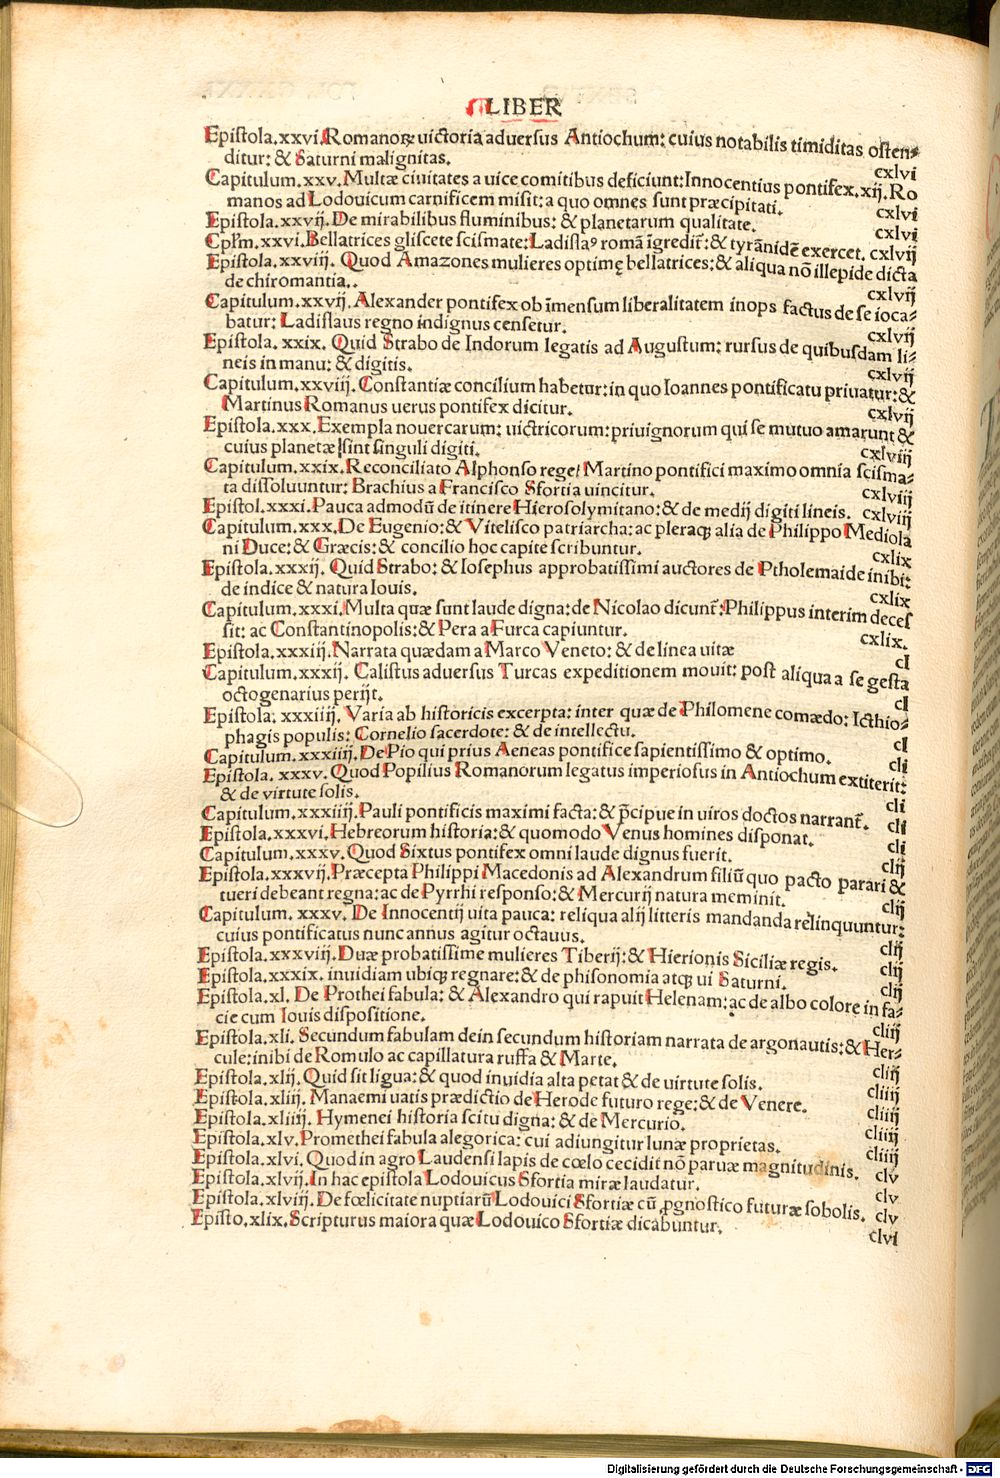 LIBER
Epistola.xxvi.Romanoꝝ uictoria aduersus Antiochum: cuius notabilis timiditas osten⸗
ditur: & Saturni malignitas. cxlvi
Capitulum.xxv.Multæ ciuitates a uice comitibus deficiunt:Innocentius pontifex.xij.Ro
manos ad Lodouicum carnificem misit: a quo omnes sunt præcipitati. cxlvi
Epistola.xxvij.De mirabilibus fluminibus: & planetarum qualitate. cxlvi
Cplm̄.xxvi.Bellatrices gliscete scismate: Ladislaꝰ romā īgredit̄:& tyrānidē exercet. cxlvij
Epistola.xxviij. Quod Amazones mulieres optimę bellatrices:& aliqua nō illepide dicta
de chiromantia.. cxlvij
Capitulum.xxvij. Alexander pontifex ob īmensum liberalitatem inops factus de se ioca⸗
batur: Ladislaus regno indignus censetur. cxlvij
Epistola. xxix. Quid Strabo de Indorum legatis ad Augustum: rursus de quibusdam li⸗
neis in manu: & digitis. cxlvij
Capitulum.xxviij. Constantiæ concilium habetur:in quo Ioannes pontificatu priuatur:&
Martinus Romanus uerus pontifex dicitur. cxlvij
Epistola.xxx.Exempla nouercarum: uictricorum:priuignorum qui se mutuo amarunt &
cuius planetæ sint singuli digiti. cxlviij
Capitulum.xxix.Reconciliato Alphonso rege: Martino pontifici maximo omnia scisma⸗
ta dissoluuntur: Brachius a Francisco Sfortia uincitur. cxlviij
Epistol.xxxi.Pauca admodū de itinere Hierosolymitano:& de medij digiti lineis. cxlviij
Capitulum.xxx.De Eugenio:& Vitelisco patriarcha: ac pleraqꝫ alia de Philippo Mediola
ni Duce:& Græcis:& concilio hoc capite scribuntur. cxlix
Epistola.xxxij. Quid Strabo: & Iosephus approbatissimi auctores de Ptholemaide inibi:
de indice & natura Iouis. cxlix
Capitulum.xxxi.Multa quæ sunt laude digna:de Nicolao dicunt̄:Philippus interim deces
sit: ac Constantinopolis:& Pera a Furca capiuntur. cxlix.
Epistola.xxxiij.Narrata quædam a Marco Veneto: & de linea uitæ cl
Capitulum.xxxij. Calistus aduersus Turcas expeditionem mouit: post aliqua a se gesta
octogenarius perijt. cl
Epistola. xxxiiij. Varia ab historicis excerpta: inter quæ de Philomene comædo: Icthio⸗
phagis populis: Cornelio sacerdote: & de intellectu. cl
Capitulum.xxxiij.De Pio qui prius Aeneas pontifice sapientissimo & optimo. cli
Epistola. xxxv. Quod Popilius Romanorum legatus imperiosus in Antiochum extiterit:
& de virtute solis. cli
Capitulum.xxxiiij.Pauli pontificis maximi facta: & p̄cipue in uiros doctos narrant̄. cli
Epistola.xxxvi.Hebreorum historia:& quomodo Venus homines disponat. cli
Capitulum.xxxv. Quod Sixtus pontifex omni laude dignus fuerit. clij
Epistola.xxxvij.Præcepta Philippi Macedonis ad Alexandrum filiū quo pacto parari &
tueri debeant regna:ac de Pyrrhi responso:& Mercurij natura meminit. clij
Capitulum. xxxv. De Innocentij uita pauca: reliqua alij litteris mandanda relinquuntur:
cuius pontificatus nunc annus agitur octauus. clij
Epistola.xxxviij.Duæ probatissime mulieres Tiberij:& Hierionis Siciliæ regis. clij
Epistola.xxxix. inuidiam ubiqꝫ regnare:& de phisonomia atqꝫ ui Saturni. clij
Epistola.xl. De Prothei fabula: & Alexandro qui rapuit Helenam: ac de albo colore in fa⸗
cie cum Iouis dispositione. cliij
Epistola.xli. Secundum fabulam dein secundum historiam narrata de argonautis:& Her⸗
cule:inibi de Romulo ac capillatura ruffa & Marte. cliij
Epistola.xlij. Quid sit ligua:& quod inuidia alta petat & de uirtute solis. cliiij
Epistola.xliij. Manaemi uatis prædictio de Herode futuro rege:& de Venere. cliiij
Epistola.xliiij. Hymenei historia scitu digna: & de Mercurio. cliiij
Epistola.xlv.Promethei fabula alegorica: cui adiungitur lunæ proprietas. cliiij
Epistola.xlvi. Quod in agro Laudensi lapis de cœlo cecidit nō paruæ magnitudinis. clv
Epistola.xlvij. In hac epistola Lodouicus Sfortia miræ laudatur. clv
Epistola.xlviij. De fœlicitate nuptiarū Lodouici Sfortiæ cū ꝓgnostico futuræ sobolis. clv
Episto.xlix. Scripturus maiora quæ Lodouico Sfortiæ dicabuntur. clvi
Digitalisierung gefördert durch die Deutsche Forschungsgemeinschaft - DFG